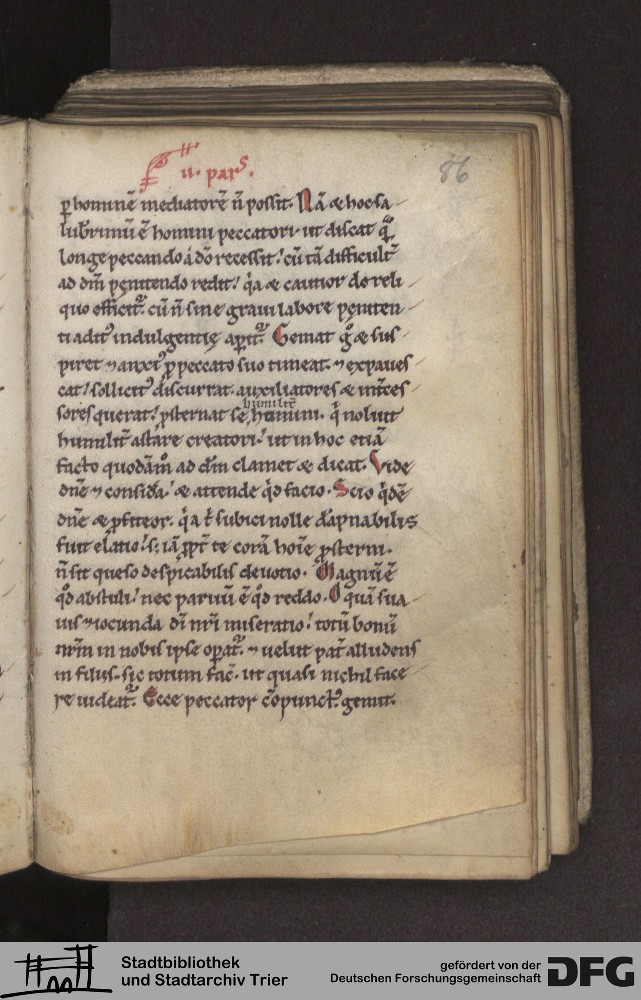 ii. pars.
86
p̱ hominē mediatorē ñ possit. Nā & hoc sa
lubrimū ē homini peccatori. ut discat q̄
longe peccando á do recessit! cū tā difficult̄
ad dm̄ pęnitendo redit! q̇a & cautior de reli
quo efficit᷑. cū ñ sine graui labore pęniten
ti adit᷒ indulgentię apit᷑. Gemat g̊ & sus
piret ⁊ anxi᷒ p̱ peccato suo timeat. ⁊ expaues
cat! sollicit᷒ discurrat. auxiliatores & int̄ces
sores querat! p̱sternat se humilit̄ homini. q̇ noluit
humilit̄ astare creatori! ut in hoc etiā
facto quodāmo ad dm̄ clamet & dicat. Vide
dn̄e ⁊ considera! & attende q̇d facio. Scio q̇dē
dn̄e & p̱fiteor. q̇a t̄ subici nolle dāpnabilis
fuit elatio! s; iā p̱pt̄ te corā hoīe p̱sterni.
ñ sit queso despicabilis deuotio. Magnū ē
q̊d abstuli! nec paruū ē q̊d reddo. O quā sua
uis ⁊ iocunda dī nr̄i miseratio! totū bonū
nr̄m in nobis ipse opat᷑. ⁊ uelut pat̄ alludens
in filiis. sic totum fac̄. ut quasi nichil face
re uideat᷑. Ecce peccator cōpunct᷒ gemit.
Stadtbibliothek
und Stadtarchiv Trier
gefördert von der
Deutschen Forschungsgemeinschaft
DFG